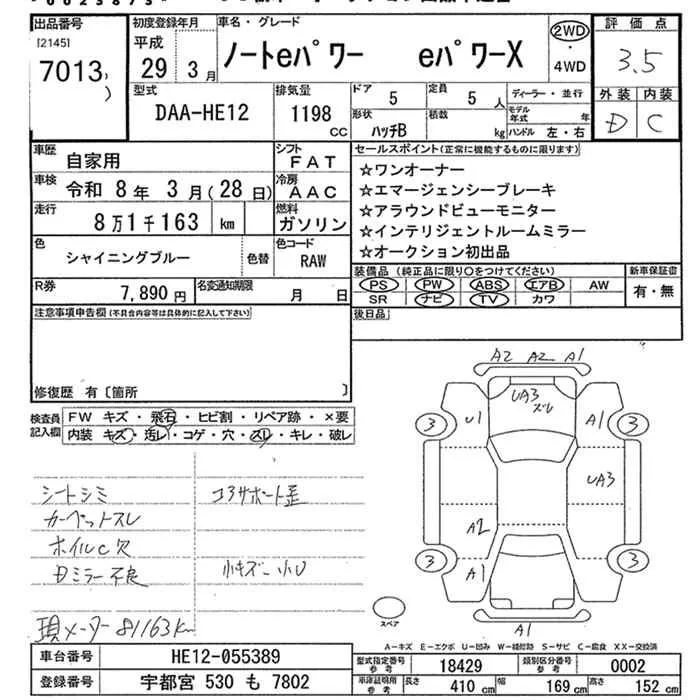 出品番号
[2145]
7013
初度登録年月
平成
29 3月
車名・グレード
ノートeパワー eパワーX
2WD
・
4WD
評価点
3.5
外装 内装
D C
型式
DAA-HE12
排気量
1198
CC
ドア
5
定員
5人
形状
ハッチB
積数
kg
ディーラー・並行
モデル年式 年
ハンドル 左・右
車歴
自家用
シフト
FAT
車検
令和 8年 3月(28日)
冷房
AAC
走行
8万1千163 km
燃料
ガソリン
色
シャイニングブルー
色替
色コード
RAW
R券
7,890円
名変通知期限
月 日
セールスポイント(正常に機能するものに限ります)
☆ワンオーナー
☆エマージェンシーブレーキ
☆アラウンドビューモニター
☆インテリジェントルームミラー
☆オークション初出品
装備品(純正品に限り○をつけてください)
PS PW ABS エアB AW
SR ナビ TV カワ
新車保証書
有・無
後日品
注意事項申告欄(不具合内容等は具体的に記入して下さい)
修復歴 有〔箇所 〕
検査員
記入欄
FW キズ・飛石・ヒビ割・リペア跡・×要
内装 キズ・汚レ・コゲ・穴・スレ・キレ・破レ
シートシミ
カーペットスレ
ホイルC欠
Dミラー不良
コアサポート歪
小キズ 小U
現メーター 81163km
A2 A2 A1
UA3
ズレ
3
U1
A1
3
UA3
A2
3
A1
3
A1
スペア
A-キズ E-エクボ U-凹み W-補修跡 S-サビ C-腐食 XX-交換済
車台番号
HE12-055389
登録番号
宇都宮 530 も 7802
型式指定番号
参考
18429
類別区分番号
参考
0002
車庫証明用
参考
長さ 410cm 幅 169cm 高さ 152cm